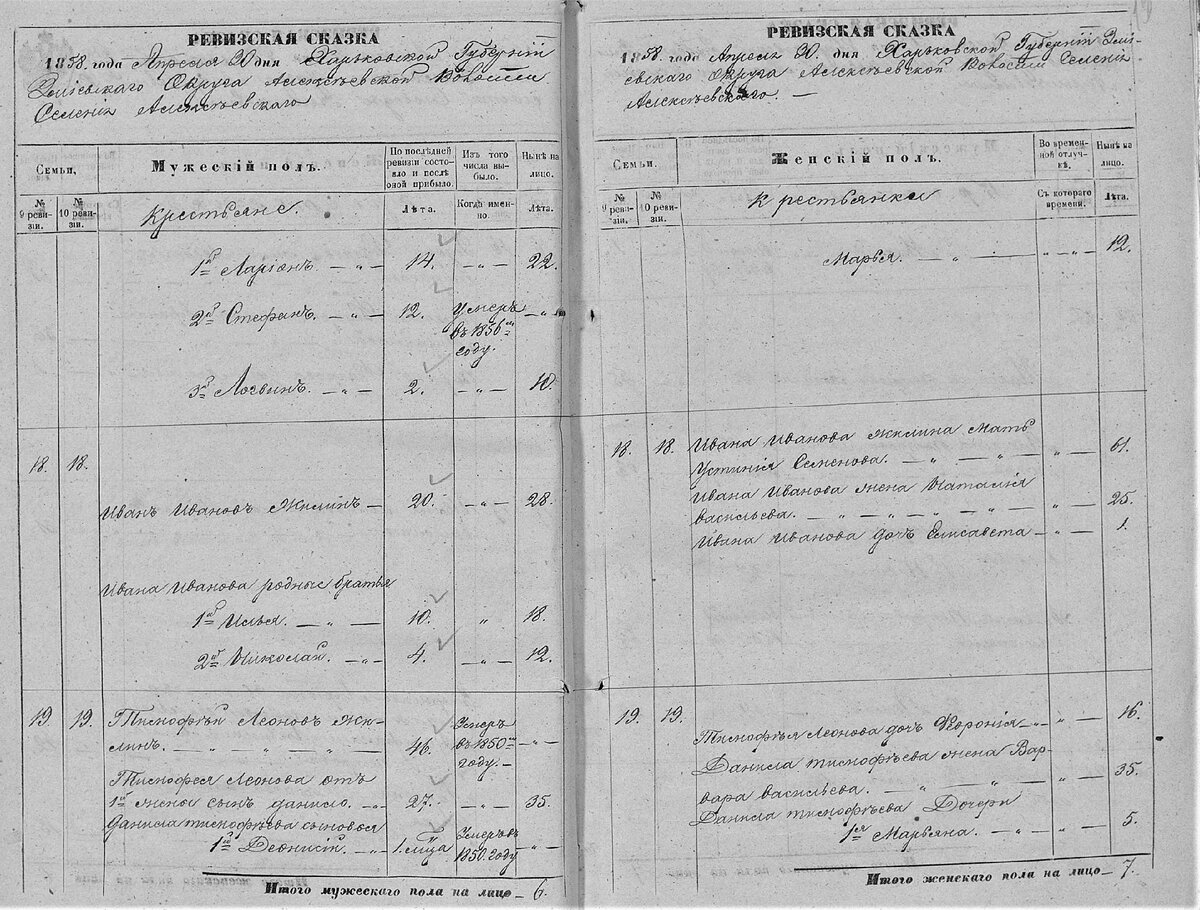 РЕВИЗСКАЯ СКАЗКА
1858. года Апреля 30 дня Харьковской Губерніи
Зміевскаго Округа Алексѣевской Волости
Селенія Алексѣевскаго
Семьи,
Мужескій полъ.
По послѣдней ревизіи состояло и послѣ оной прибыло.
Изъ того числа выбыло.
Нынѣ на лицо.
№ 9 ревизіи.
№ 10 ревизіи.
Крестьяне.
Лѣта.
Когда именно.
Лѣта.
1й Ларіонъ. — „ — 14. — „ — 22.
2й Стефанъ. — „ — 12. Умеръ въ 1856м году. — „ —
3й Логвинъ. — „ — 2. — „ — 10.
18. 18.
Иванъ Ивановъ Жилинъ — 20. — „ — 28
Ивана Иванова родные братья
1й Илья. — „ — 10. „ 18.
2й Николай. — „ — 4. — „ — 12.
19. 19. Тимофѣй Леоновъ Жи-
линъ. — „ „ „ „ — 46. Умеръ въ 1850м году. — — „ —
Тимофея Леонова отъ
1й жены сынъ Данило. — „ 27. — „ — 35.
Данила Тимофѣева сыновья
1й Деонисій. — „ — 1. мѣца Умеръ въ 1850. году — „ —
Итого мужескаго пола на лицо — 6.
РЕВИЗСКАЯ СКАЗКА
1858. года Апреля 30. дня Харьковской Губерніи Змі-
евскаго Округа Алексѣевской Волости Селенія
Алексѣевскаго. —
Семьи.
Женскій полъ.
Во временной отлучкѣ.
Нынѣ на лицо.
№ 9 ревизіи.
№ 10 ревизіи.
Крестьянки
Съ котораго времени.
Лѣта.
Марья. — „ — „ — „ — 12.
18. 18. Ивана Иванова Жилина Мать
Устинія Семенова. — „ — „ — „ — 61.
Ивана Иванова жена Наталія
Васильева. — „ — „ — „ — „ — 25.
Ивана Иванова дочь Елисавета — „ — 1.
19. 19.
Тимофѣя Леонова дочь Февронія — „ — „ — 16.
Данила Тимофѣева жена Вар-
вара Васильева. — „ — „ — „ — 35.
Данила Тимофѣева Дочери
1я Марьяна. — „ — „ — 5.
Итого женскаго пола на лицо — 7.